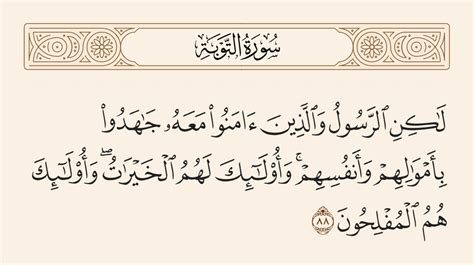 سُورَةُ التَّوْبَةِ
لَٰكِنِ ٱلرَّسُولُ وَٱلَّذِينَ ءَامَنُوا۟ مَعَهُۥ جَٰهَدُوا۟
بِأَمْوَٰلِهِمْ وَأَنفُسِهِمْ ۚ وَأُو۟لَٰٓئِكَ لَهُمُ ٱلْخَيْرَٰتُ ۖ وَأُو۟لَٰٓئِكَ
هُمُ ٱلْمُفْلِحُونَ ٨٨